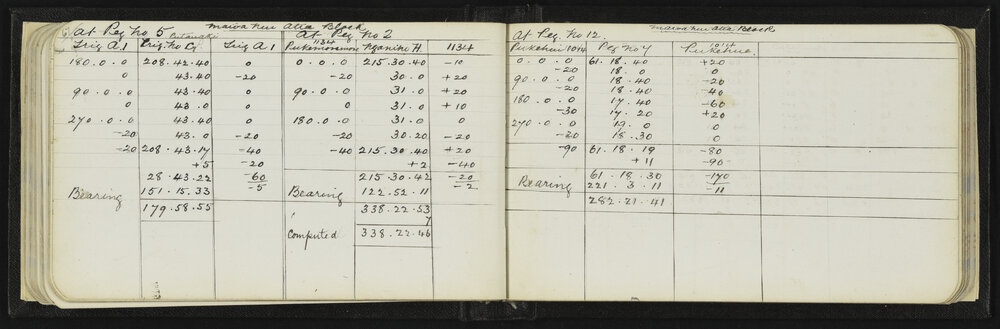 At Peg No 5
Trig A1 Trig No Trig A1
180.0.0 208.42.40 0
0 43.40 -20
90.0.0 43.40 0
0 43.0 0
270.0.0 43.40 0
-20 43.0 -20
-20 208.43.17 -40
+5 -20
28.43.22 -60
Bearing 151.15.33 -5
179.58.55
Block
At Peg No 2
1134
H. 1134
0.0.0 215.30.40 -10
-20 30.0 +20
90.0.0 31.0 +20
0 31.0 +10
180.0.0 31.0 0
-20 30.20 -20
-40 215.30.40 +20
+2 -40
215.30.42 -20
Bearing 122.52.11 -2
338.22.53
7
Computed 338.22.46
Block
At Peg No 12.
1014
Pukehui 1014 Peg No 4 Pukehue
0.0.0 61.18.40 +20
-20 18.0 0
90.0.0 18.40 -20
-20 18.40 -40
180.0.0 17.40 -60
-30 17.20 +20
270.0.0 19.0 0
-20 18.30 0
-90 61.18.19 -80
+11 -90
61.18.30 -170
Bearing 221.3.11 -11
282.21.41